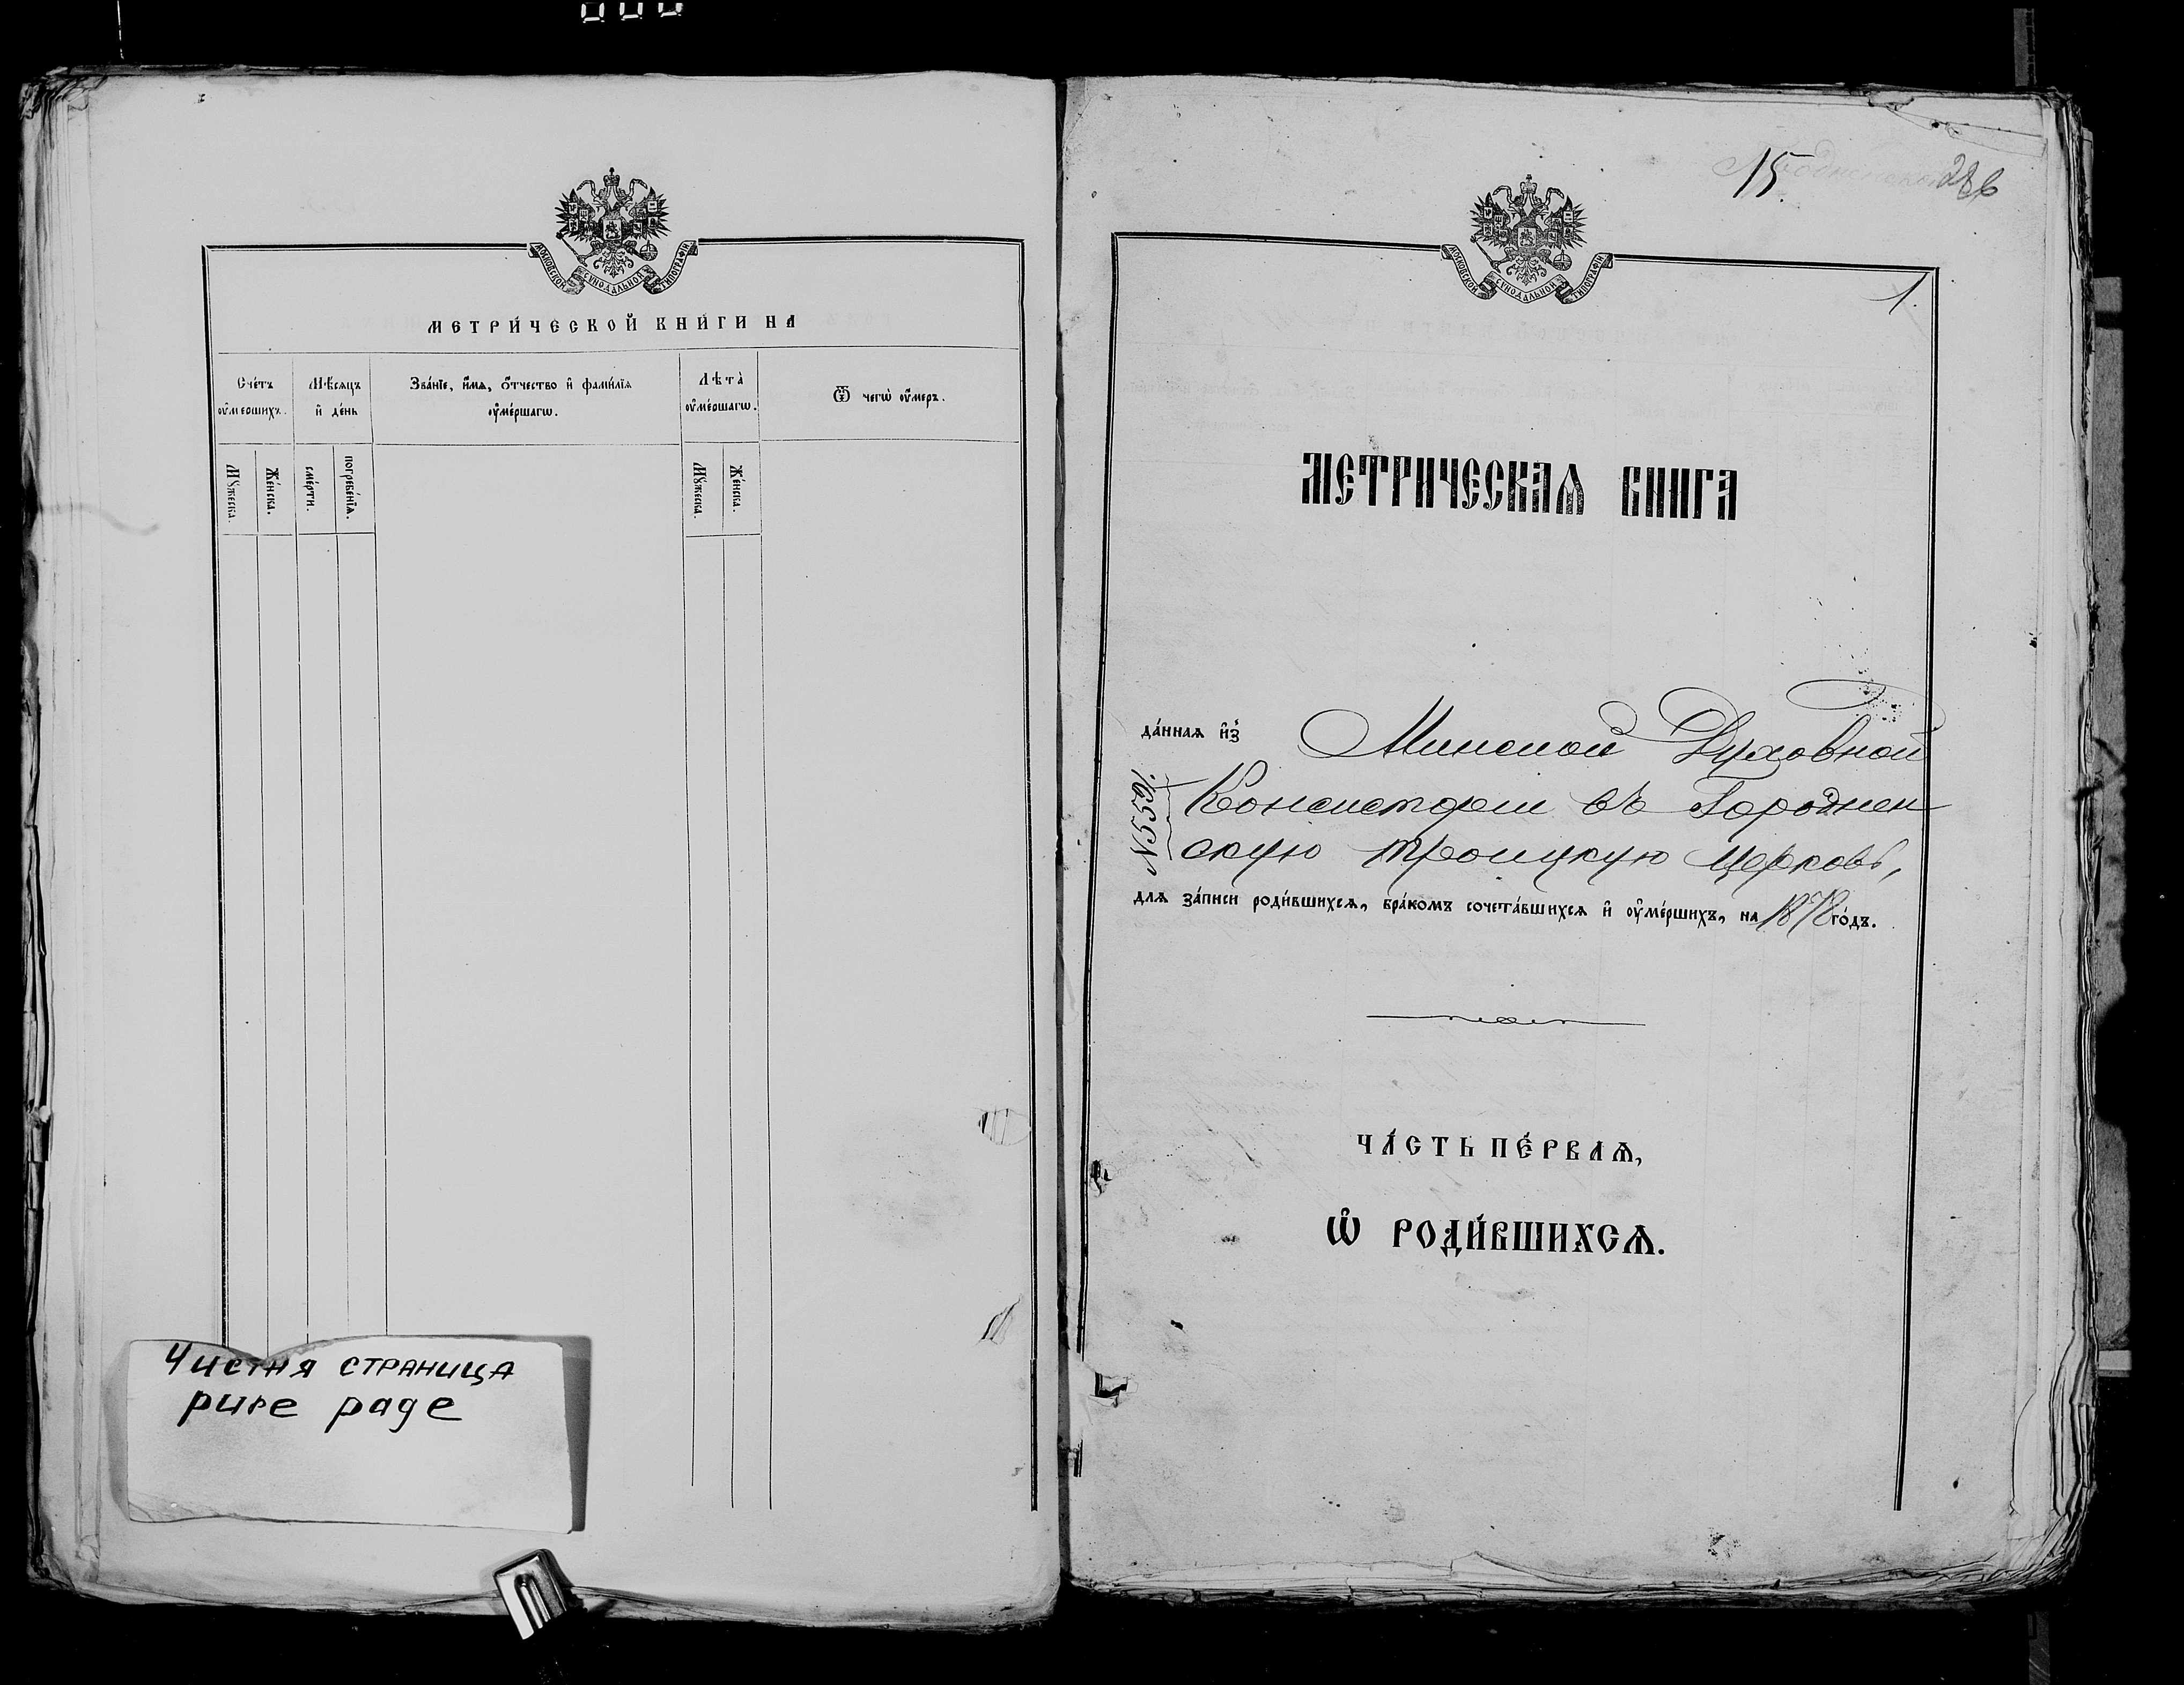 МОСКОВСКОЙ СѴНОДАЛЬНОЙ ТИПОГРАФІИ
МЕТРИ́ЧЕСКОЙ КНИ́ГИ НА
Сче́тъ оу҆ме́ршихъ.
Мѣ́сяцъ и҆ де́нь
Зва́нїе, и҆́мѧ, ѻ҆́тчество и҆ фами́лїѧ оу҆ме́ршагѡ.
Лѣта̀ оу҆ме́ршагѡ.
Ѿ чегѡ̀ оу҆́меръ.
Мꙋ́жеска.
Же́нска.
сме́рти.
погребе́нїѧ.
Мꙋ́жеска.
Же́нска.
Чистня страница
pure page
15.
286
МОСКОВСКОЙ СѴНОДАЛЬНОЙ ТИПОГРАФІИ
1.
МЕТРИЧЕСКАѦ КНИГА
да́ннаѧ и҆з̾ Минской Духовной
Консисторіи въ Городнен
скую Троицкую Церковь,
№ 559.
длѧ за́писи роди́вшихсѧ, бра́комъ сочета́вшихсѧ и҆ оу҆ме́ршихъ, на 1878 го́дъ.
ЧА́СТЬ ПЕ́РВАѦ,
Ѡ҆ РОДИ́ВШИХСѦ.